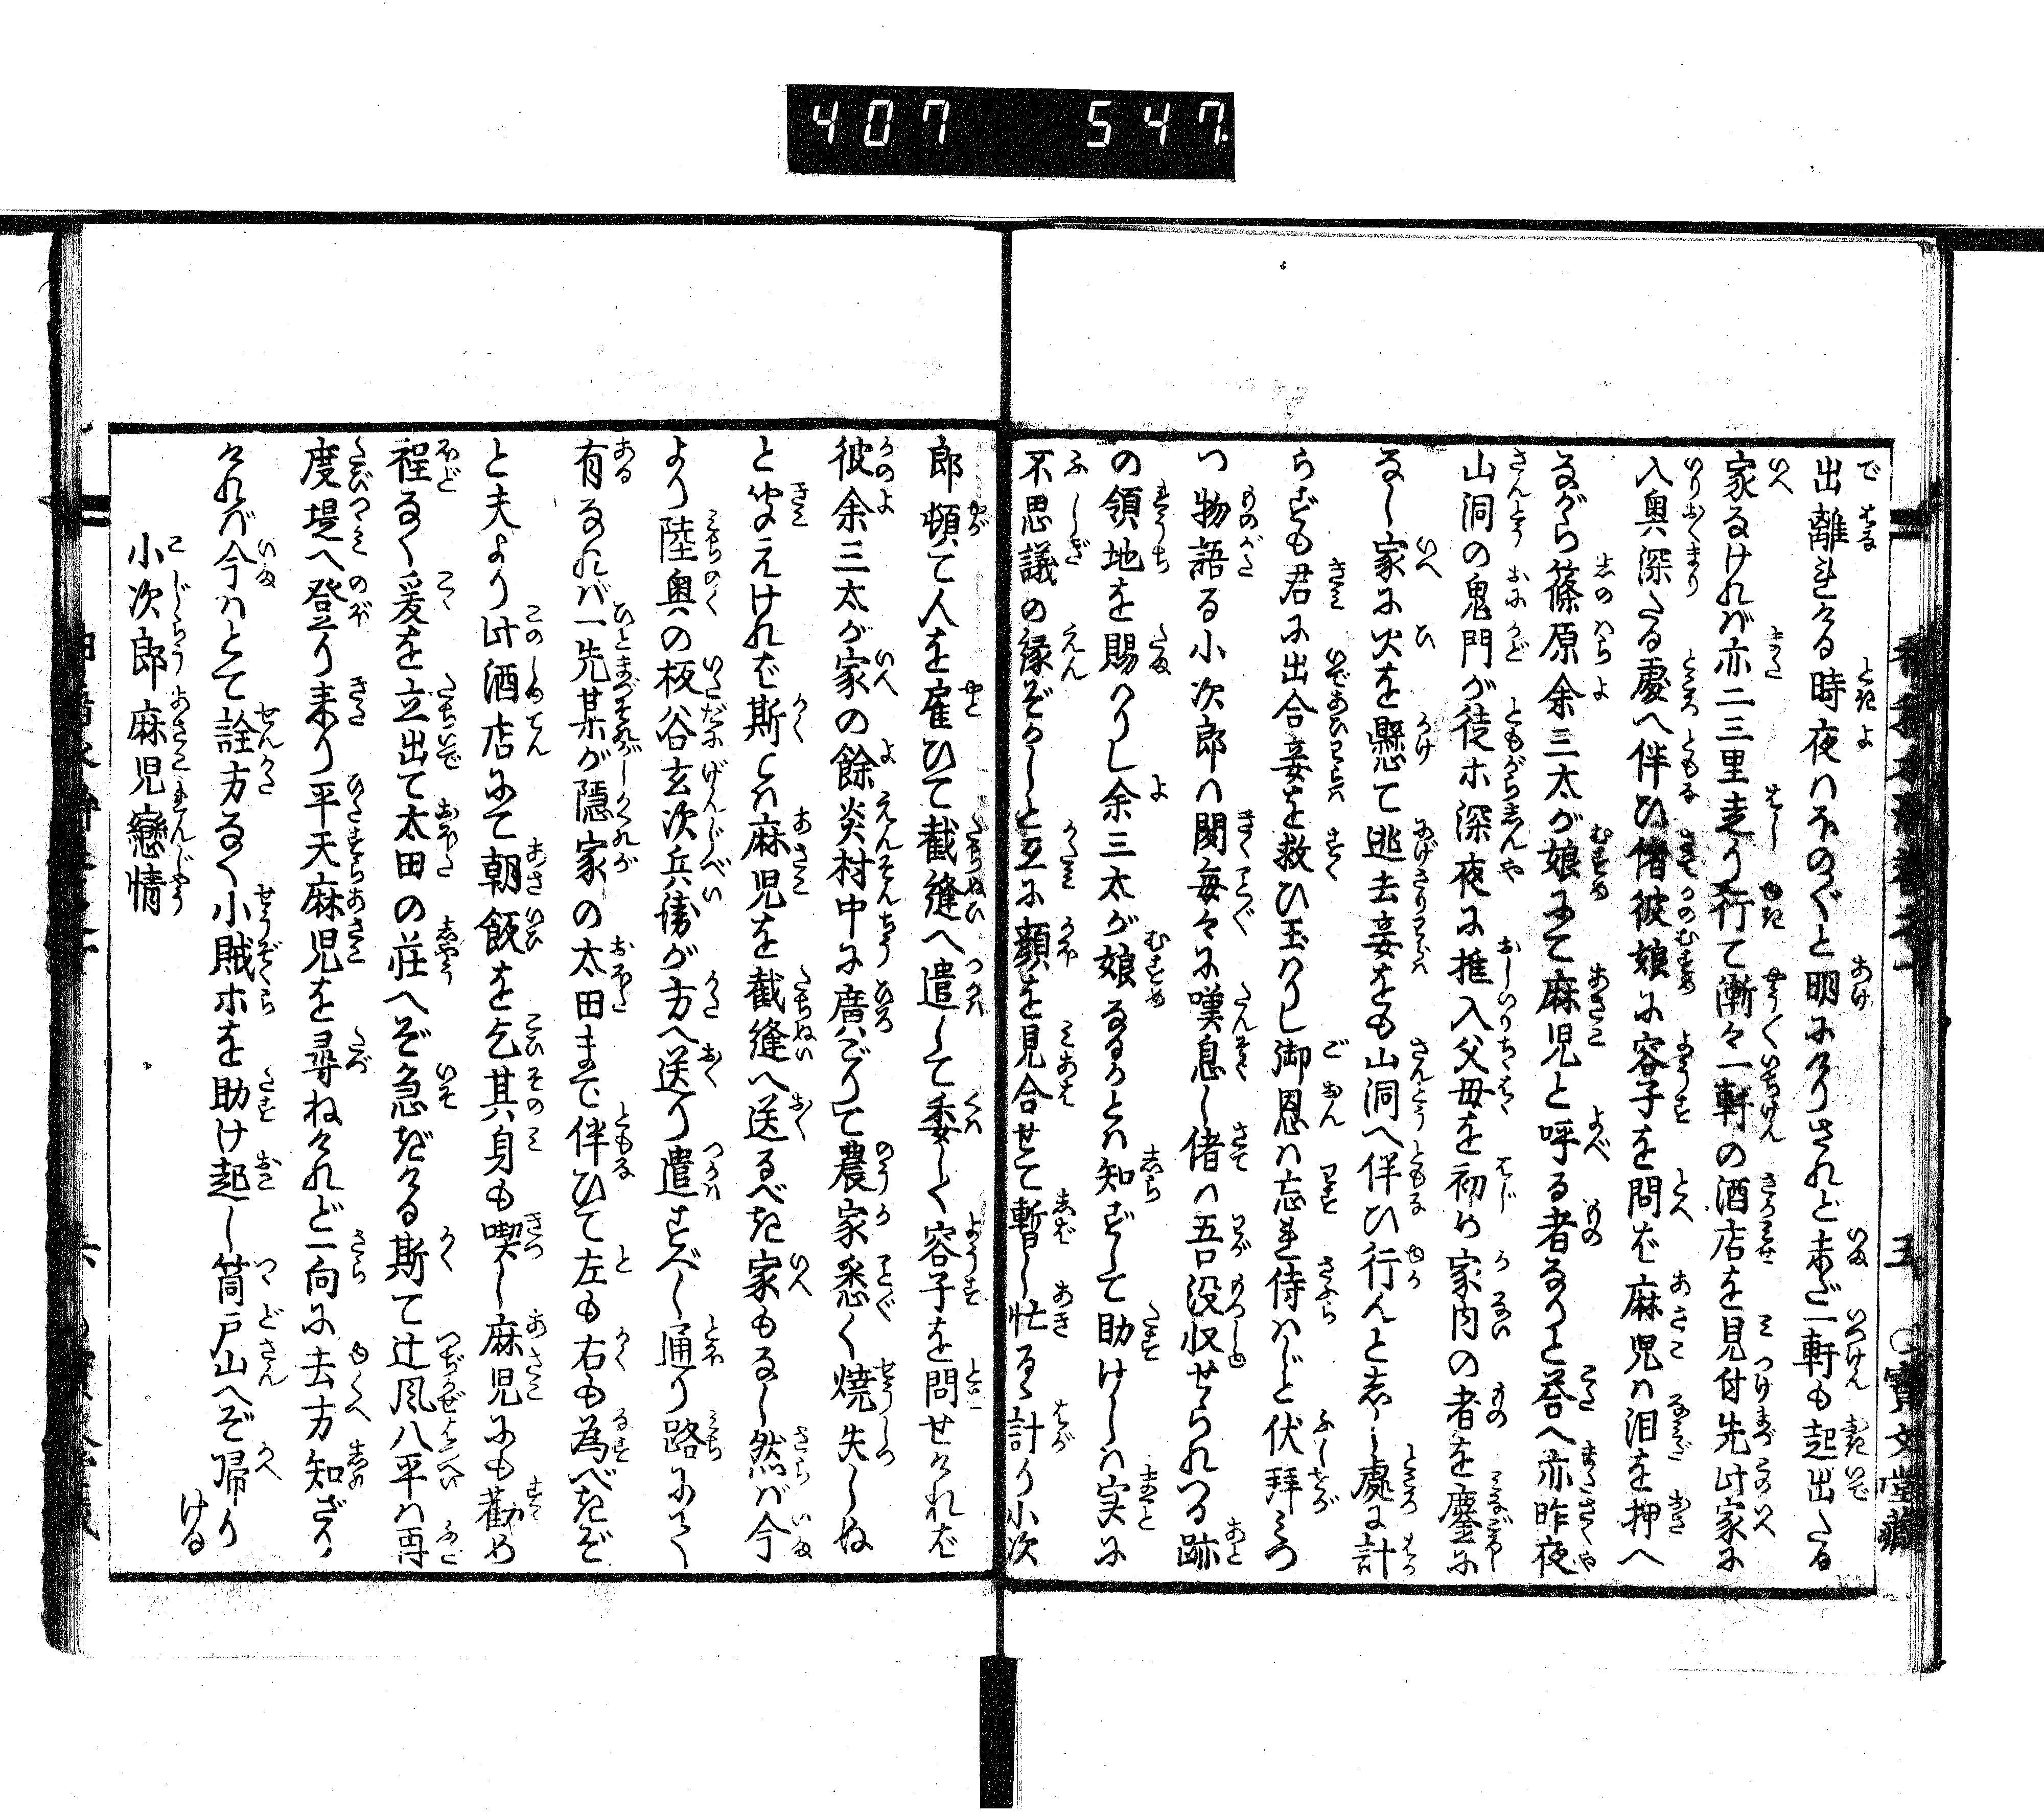 407 547
出離れける時夜ハほのぐと明にけりされど未ご一軒も起出たる
家なければ亦二三里走り行て漸々一軒の酒店を見付先此家に
入奥深たる処へ伴ひ偖彼娘に容子を問ば麻児ハ泪を押へ
ながら篠原余三太が娘にて麻児と呼る者なりと荅へ亦昨夜
山洞の鬼門が徒ホ深夜に推入父母を初め家内の者を鏖に
なし家に火を懸て迯去妾をも山洞へ伴ひ行んとしし処に計
らずも君に出合妾を救ひ玉ハりし御恩ハ忘れ侍ハじと伏拝みつ
つ物語る小次郎ハ聞毎々に嘆息し偖ハ吾没収せられつる跡
の領地を賜ハりし余三太が娘なるとハ知ずして助けしハ実に
不思議の縁ぞかしと互に顔を見合せて暫し忙るゝ計り小次
郎頓て人を雇ひて截縫へ遣して委しく容子を問せけれバ
彼余三太が家の餘炎村中に廣ごりて農家悉く焼失しぬ
と聞えければ斯てハ麻児を截縫へ送るべき家もなし然バ今
より陸奥の板谷玄次兵衛が方へ送り遣すべし通り路にて
有なれバ一先某が隠家の太田まで伴ひて左も右も為べきぞ
と夫より此酒店にて朝飯を乞其身も喫し麻児にも勸め
程なく爰を立出て太田の荘へぞ急ぎける斯て辻風八平ハ再
度堤へ登り来り平天麻児を尋ねけれど一向に去方知ざり
ければ今ハとて詮方なく小賊ホを助け起し筒戸山へぞ帰り
ける
小次郎麻児戀情
五 〇寳文堂藏